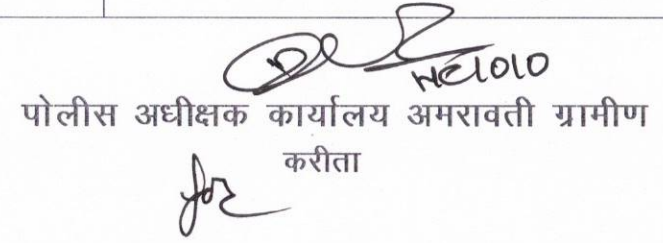 HC1010
पोलीस अधीक्षक कार्यालय अमरावती ग्रामीण
करीता
for